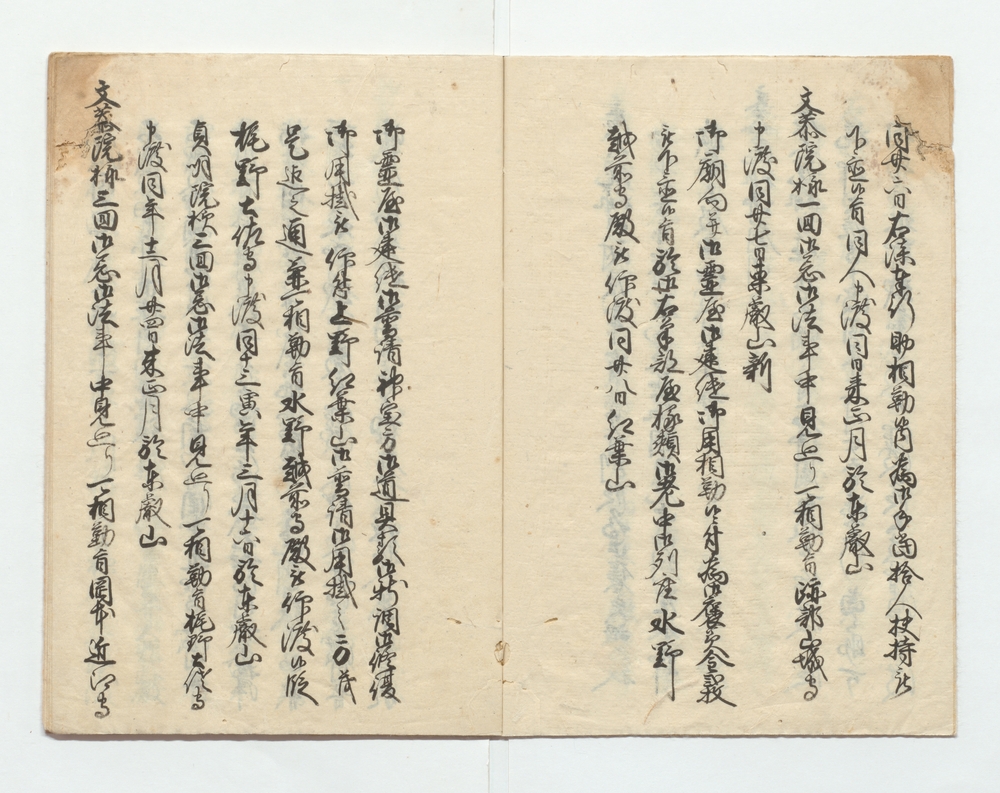 同廿六日右深車行助相勤候為御手当拾人扶持被
下置候旨同人申渡同日来正月於東叡山
文恭院様一回御忌御法事中見廻り可相勤旨跡部山城守
申渡同廿七日東叡山新
御廟向并御霊屋御建継御用相勤候ニ付為御褒美金弐枚
被下置候旨於御右筆部屋椽頬御老中御列座水野
越前守殿被仰渡同廿八日紅葉山
御霊屋御建継御普請神宝方御道具類仕訳調御修復
御用掛被仰付上野紅葉山御普請御用掛之
是迄之通兼可相勤旨水野越前守殿被仰渡候段
梶野土佐守申渡同十三寅年三月十六日於東叡山
貞明院様三回御忌御法事中見廻り可相勤旨梶野土佐守
申渡同年十二月廿四日来正月於東叡山
文恭院様三回御忌御法事中見廻り可相勤旨岡本近江守